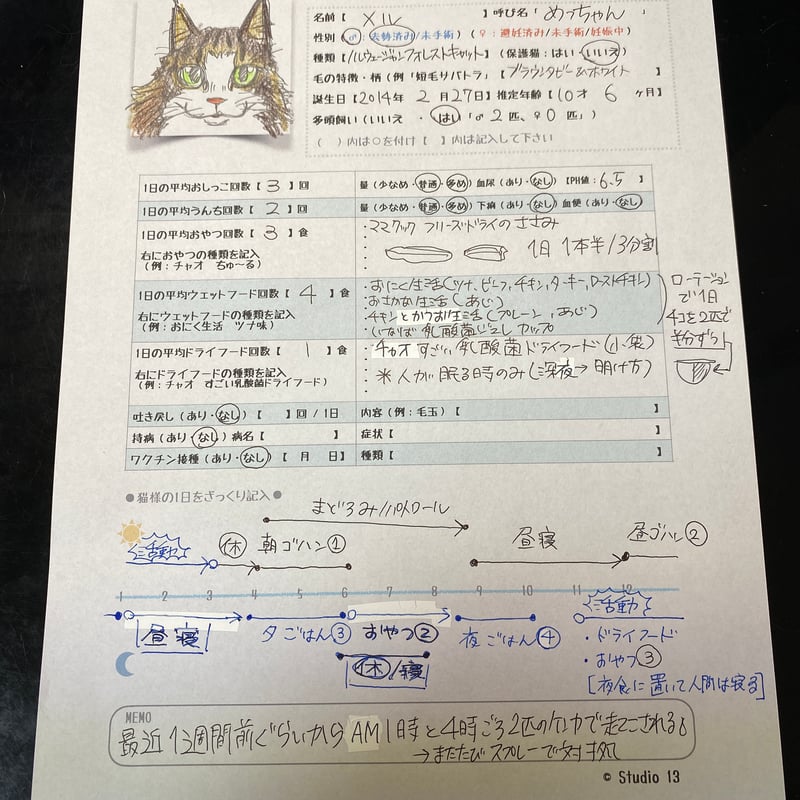 名前【 メル 】呼び名「 めっちゃん 」
性別(♂:去勢済み/未手術)(♀:避妊済み/未手術/妊娠中)
種類【ノルウェージャンフォレストキャット】(保護猫:はい・いいえ)
毛の特徴・柄(例「短毛サバトラ」【ブラウンタビー&ホワイト 】
誕生日【2014年 2月27日】推定年齢【10才 6ヶ月】
多頭飼い(いいえ ・ はい「♂2匹、♀0匹」)
( )内は○を付け【 】内は記入して下さい
1日の平均おしっこ回数【 3 】回 量(少なめ・普通・多め)血尿(あり・なし)【PH値:6.5 】
1日の平均うんち回数【 2 】回 量(少なめ・普通・多め)下痢(あり・なし)血便(あり・なし)
1日の平均おやつ回数【 3 】食
右におやつの種類を記入
(例:チャオ ちゅ〜る)
・ママクック フリーズドライのささみ
1日1本半/3分割
1日の平均ウェットフード回数【 4 】食
右にウェットフードの種類を記入
(例:おにく生活 ツナ味)
・おにく生活(ツナ、ビーフ、チキン、ターキー、ローストチキン)
・おさかな生活(あじ)
・チキンとかつお生活(プレーン、あじ)
・いなば 乳酸菌 カップ
ローテーション
で1日
4コを2匹で
半分ずつ
1日の平均ドライフード回数【 1 】食
右にドライフードの種類を記入
(例:チャオ すごい乳酸菌ドライフード)
・チャオ すごい乳酸菌ドライフード(小袋)
※人が眠る時のみ(深夜→明け方)
吐き戻し(あり・なし)【 】回/1日 内容(例:毛玉)【 】
持病(あり・なし)病名【 】 症状【 】
ワクチン接種(あり・なし)【 月 日】 種類【 】
●猫様の1日をざっくり記入●
まどろみ/パトロール
活動 休 朝ゴハン① 昼寝 昼ゴハン②
1 2 3 4 5 6 7 8 9 10 11 12
昼寝 夕ごはん③ おやつ② 夜ごはん④ 活動
休/寝
・ドライフード
・おやつ③
[夜食に置いて人間は寝る]
MEMO
最近1週間前ぐらいからAM1時と4時ごろ2匹のケンカで起こされる
→またたびスプレーで対処
© Studio 13